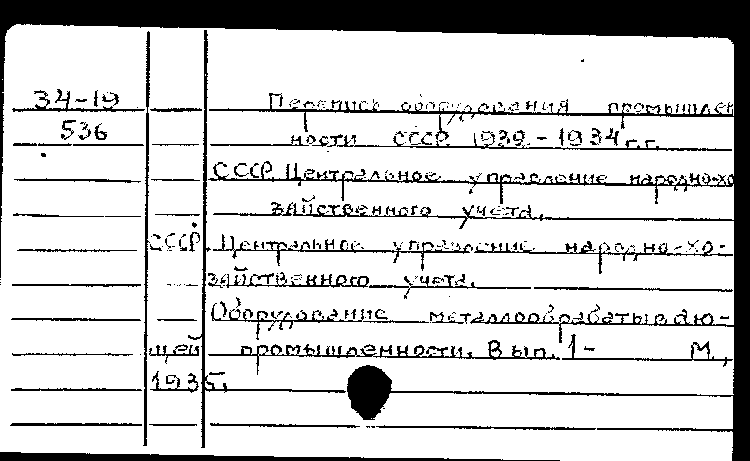 34-19 Перепись оборудования промышлен
536 ности СССР 1932-1934 г.г.
СССР. Центральное управление народно-хо
зяйственного учета.
СССР. Центральное управление народно-хо-
зяйственного учета.
Оборудование металлообрабатываю-
щей промышленности. Вып. 1- М.,
1935.